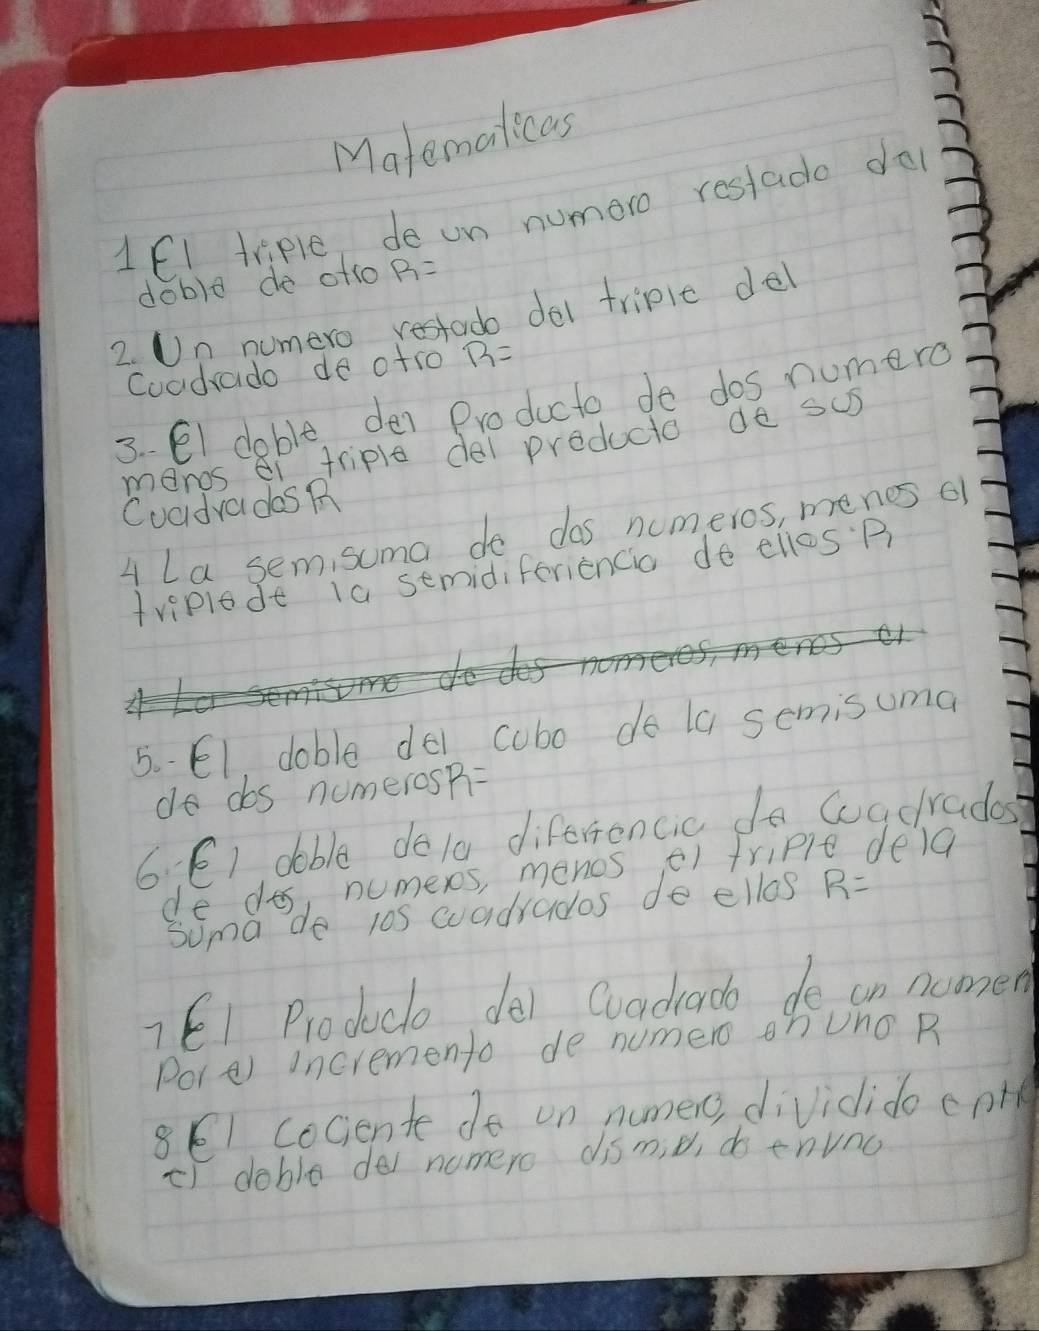 Matematicas
1 El triple de un numero restado del
doble de otro R=
2. Un numero restado del triple del
Cuadrado de otro R=
3.- El doble del Producto de dos numero
menos el triple del preducto de sus
Cuadrados R
4 La semisuma de dos numeros, menos el
triple de la semidiferiencia de ellos R
4 La semisuma de dos numeros, menos el
5.- El doble del cubo de la semisuma
de dos numeros R=
6.- El doble de la diferiencia de Cuadrados
de dos numeros, menos el triple de la
suma de los cuadrados de ellos R=
7 El Producto del Cuadrado de un numer
Por el incremento de numero en uno R
8 El cociente de un numero, dividido entre
el doble del numero en uno